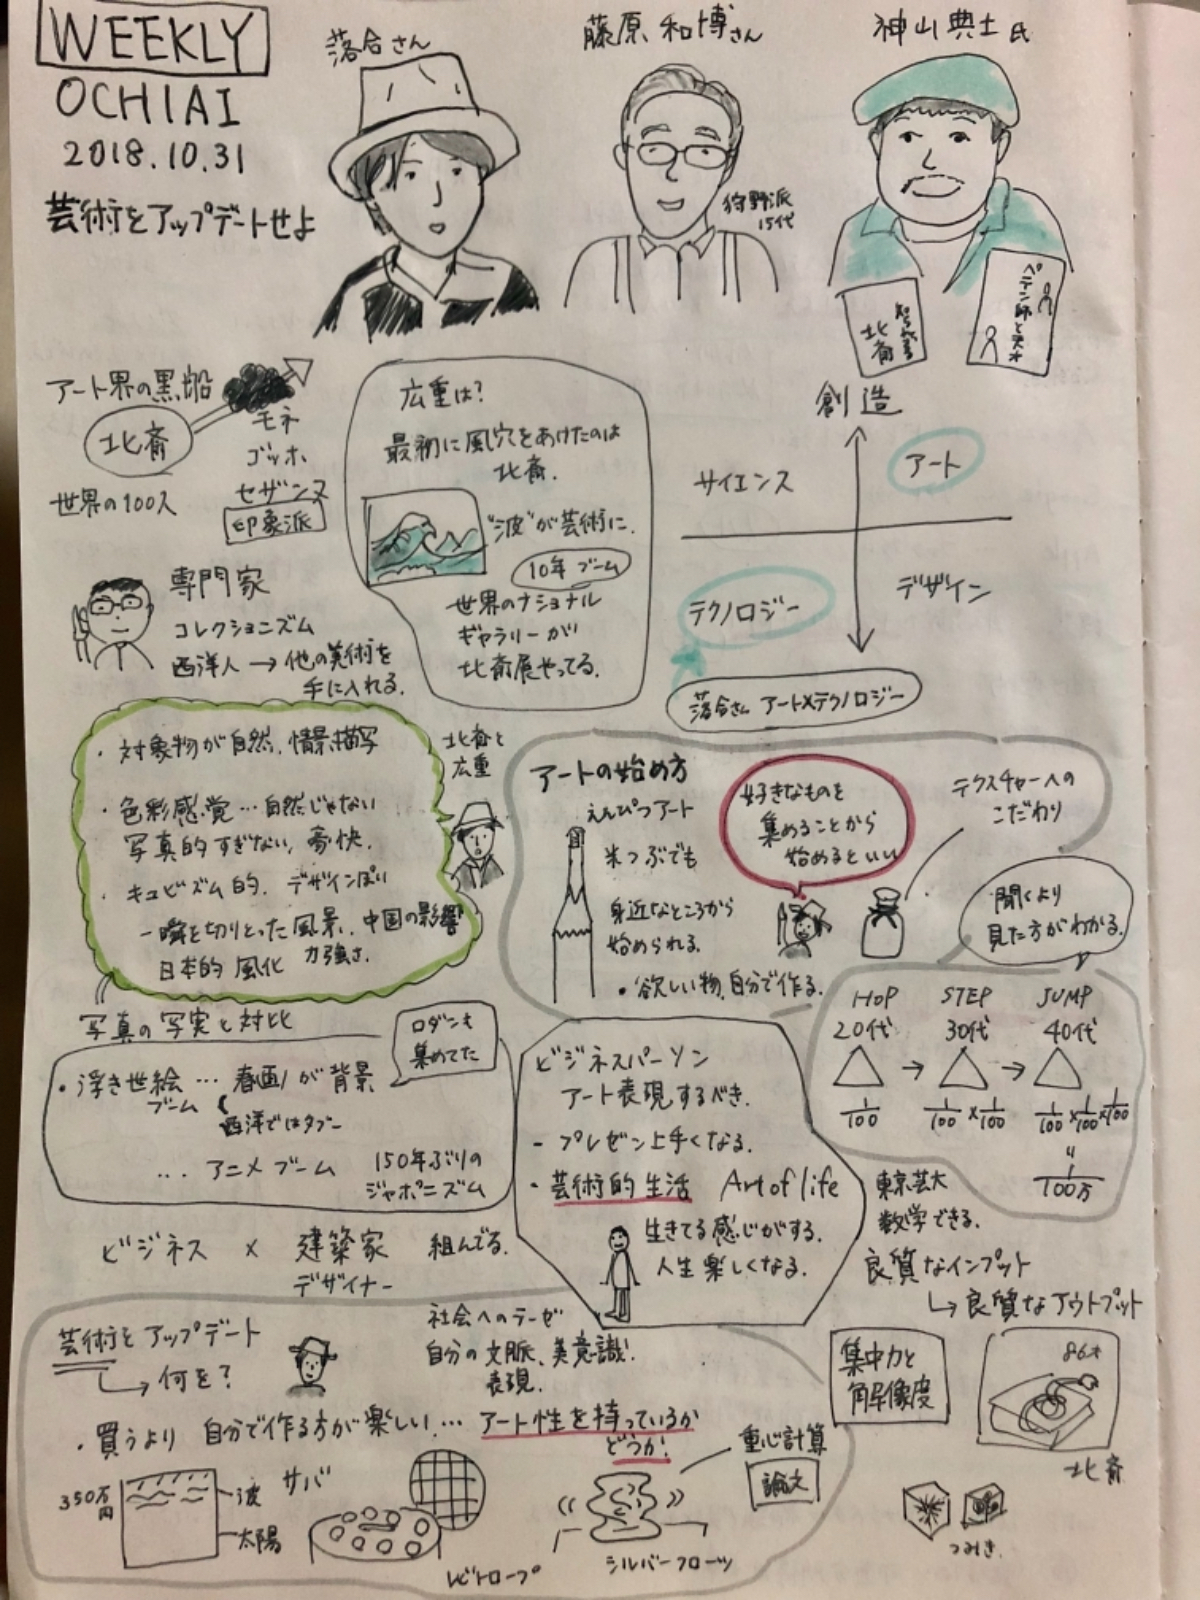 WEEKLY
OCHIAI
2018.10.31
芸術をアップデートせよ
落合さん
藤原和博さん
狩野派
15代
神山典士氏
知られざる
北斎
ペテン師と天才
アート界の黒船
北斎
世界の100人
モネ
ゴッホ
セザンヌ
印象派
広重は?
最初に風穴をあけたのは
北斎.
"波"が芸術に.
10年ブーム
世界のナショナル
ギャラリーが
北斎展やってる.
創造
サイエンス
アート
テクノロジー
デザイン
落合さん アート×テクノロジー
専門家
コレクショニズム
西洋人→他の美術を
手に入れる.
北斎と
広重
・対象物が自然,情景描写
・色彩感覚…自然じゃない
写真的すぎない,豪快.
・キュビズム的.デザインぽい
一瞬を切りとった風景.中国の影響
日本的風化 力強さ.
写真の写実と対比
アートの始め方
えんぴつアート
米つぶでも
身近なところから
始められる.
・欲しい物,自分で作る.
好きなものを
集めることから
始めるといい
テクスチャーへの
こだわり
聞くより
見た方がわかる.
HOP STEP JUMP
20代 30代 40代
→ →
1/100 1/100×1/100 1/100×1/100×1/100
=
1/100万
ロダンも
集めてた
・浮き世絵…春画が背景
ブーム
西洋ではタブー
…アニメブーム 150年ぶりの
ジャポニズム
ビジネスパーソン
アート表現するべき.
-プレゼン上手くなる.
・芸術的生活 Art of life
生きてる感じがする.
人生楽しくなる.
東京芸大
数学できる.
良質なインプット
→良質なアウトプット
ビジネス × 建築家 組んでる.
デザイナー
芸術をアップデート
→何を?
社会へのテーゼ
自分の文脈、美意識.
表現.
・買うより 自分で作る方が楽しい…アート性を持っているか
どうか.
350万円
波
太陽
サバ
レビトロープ
シルバーフローツ
重心計算
論文
集中力と
解像度
86才
北斎
つみき.